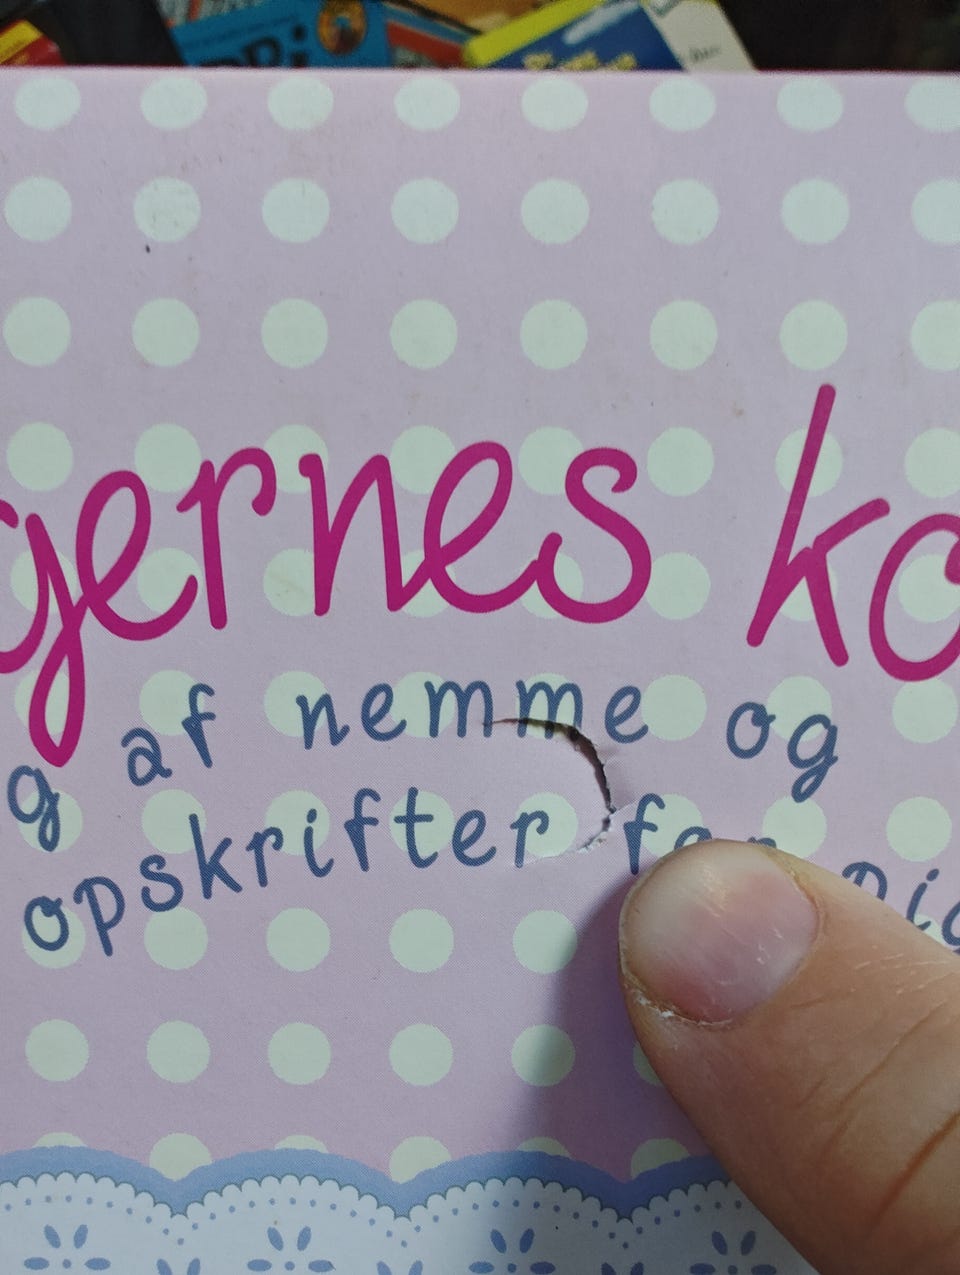 gernes ko
g af nemme og
opskrifter for pig